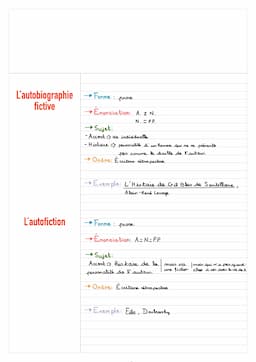 L'autobiographie
fictive
→ Forme : prose
→ Énonciation: A ≠ N.
N = P.P.
→ Sujet:
- Accent → vie individuelle
- Histoire → personnalité d'un homme qui ne se présente
pas comme le double de l'auteur.
→ Ordre: Écriture rétrospective
→ Exemple: L'Histoire de Gil Blas de Santillane,
Alain-René Lesage
L'autofiction
→ Forme : prose.
→ Énonciation: A=N=P.P
→ Sujet:
Accent → Histoire de la
personnalité de l'auteur.
mais est
une fiction
→ Ordre: Écriture rétrospective
→ Exemple: Fils, Doubrovsky